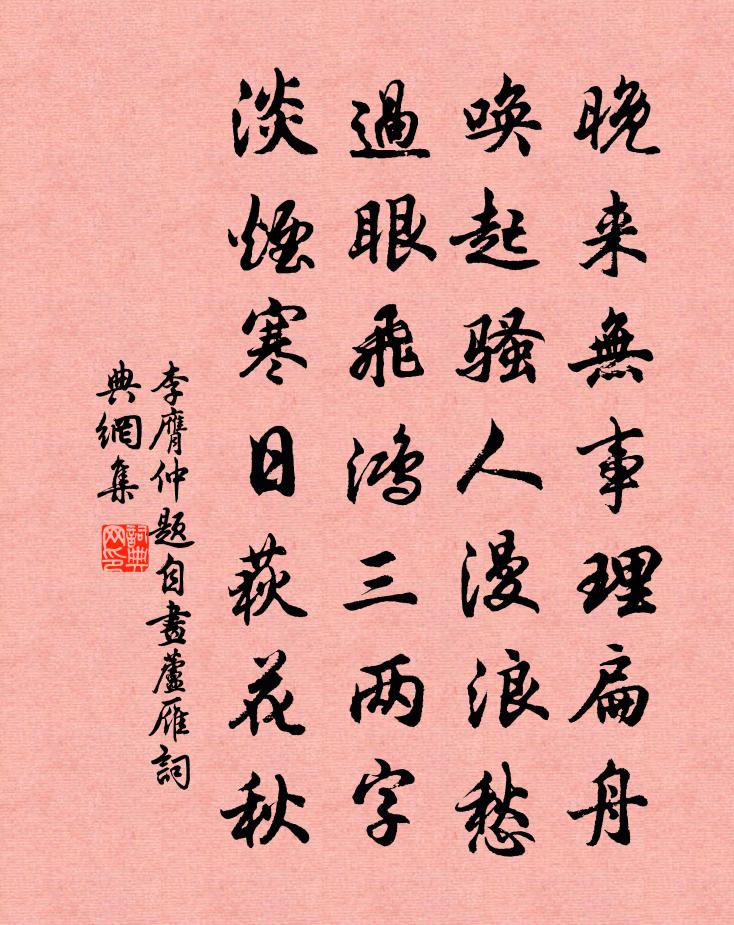 晚来無事理扁舟
唤起骚人漫浪愁
過眼飛鴻三两字
淡煙寒日荻花秋
李膺仲题自畫蘆雁詞
典網集
詞典
网印